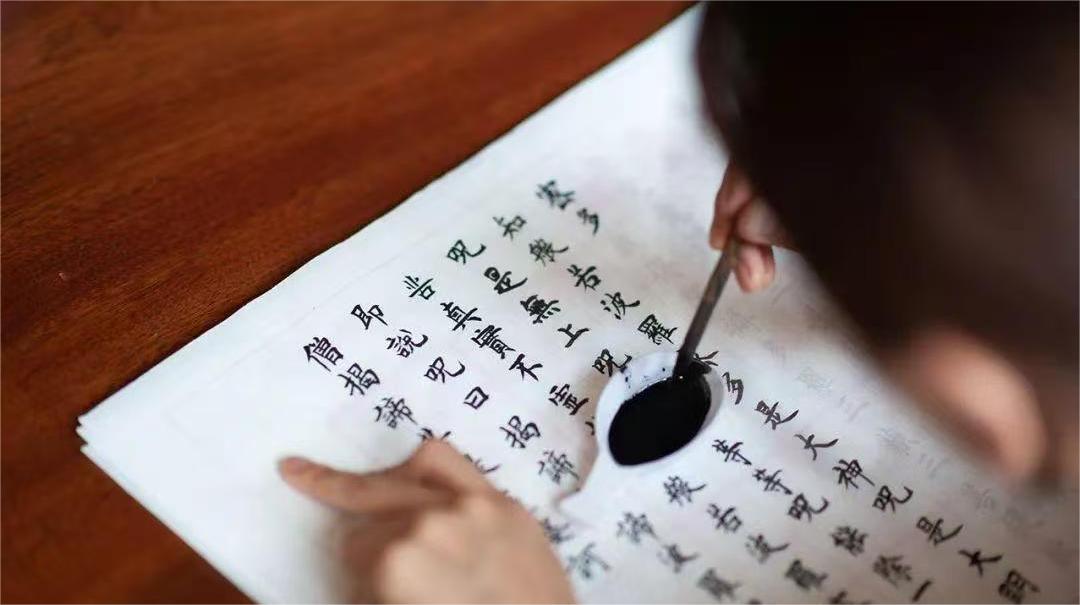 密多
知般若波羅多是大神咒是大明
咒是無上咒等等咒能除一
苦真實不虛般若波羅
即說咒曰揭諦諦波羅
僧揭諦訶